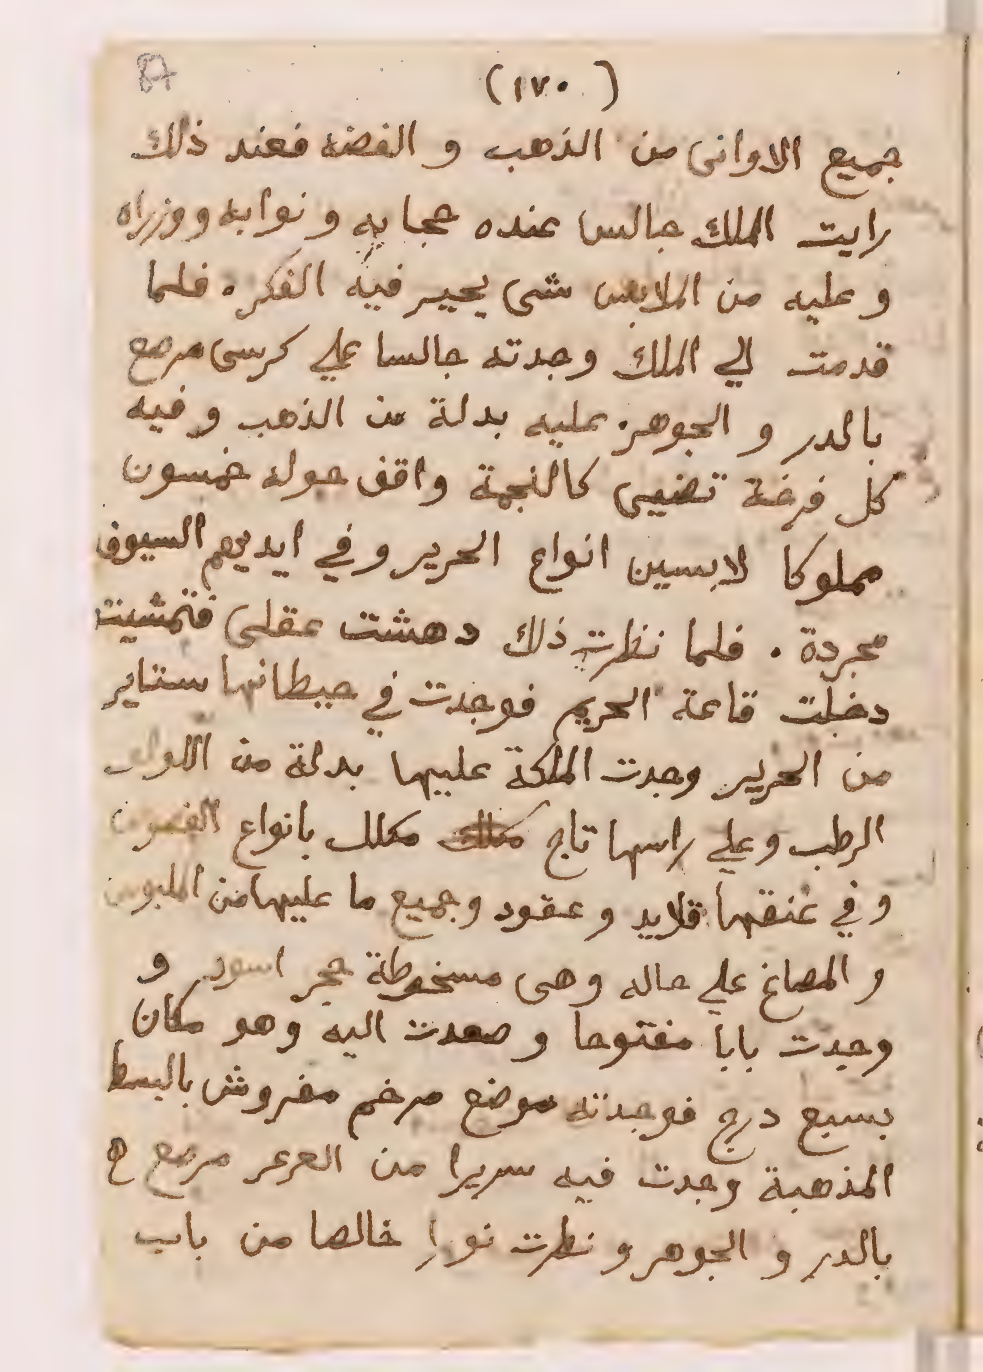 (١٧٠)
جميع الاوانى من الذهب و الفضه فعند ذلك
رايت الملك جالسا عنده حجابه و نوابه و وزراه
و عليه من الملابس شى يحير فيه الفكر . فلما
قدمت الي الملك وجدته جالسا علي كرسى مرصع
بالدر و الجوهر . عليه بدلة من الذهب و فيه
كل فرخة تضيى كالنجمة واقف حوله خمسون
مملوكا لابسين انواع الحرير و في ايديهم السيوف
مجردة . فلما نظرت ذلك دهشت عقلى فتمشيت
دخلت قاعة الحريم فوجدت في حيطانها ستاير
من الحرير وجدت الملكة عليها بدلة من اللولو
الرطب و علي راسها تاج مكلل بانواع الفصوص
و في عنقها قلايد و عقود وجميع ما عليها من الملبوس
و المصاغ علي حاله وهى مسخوطة حجر اسود و
وجدت بابا مفتوحا و صعدت اليه وهو مكان
بسبع درج فوجدته موضع مرخم مفروش بالبسط
المذهبة وجدت فيه سريرا من العرعر مرصع
بالدر و الجوهر و نظرت نورا خالصا من باب